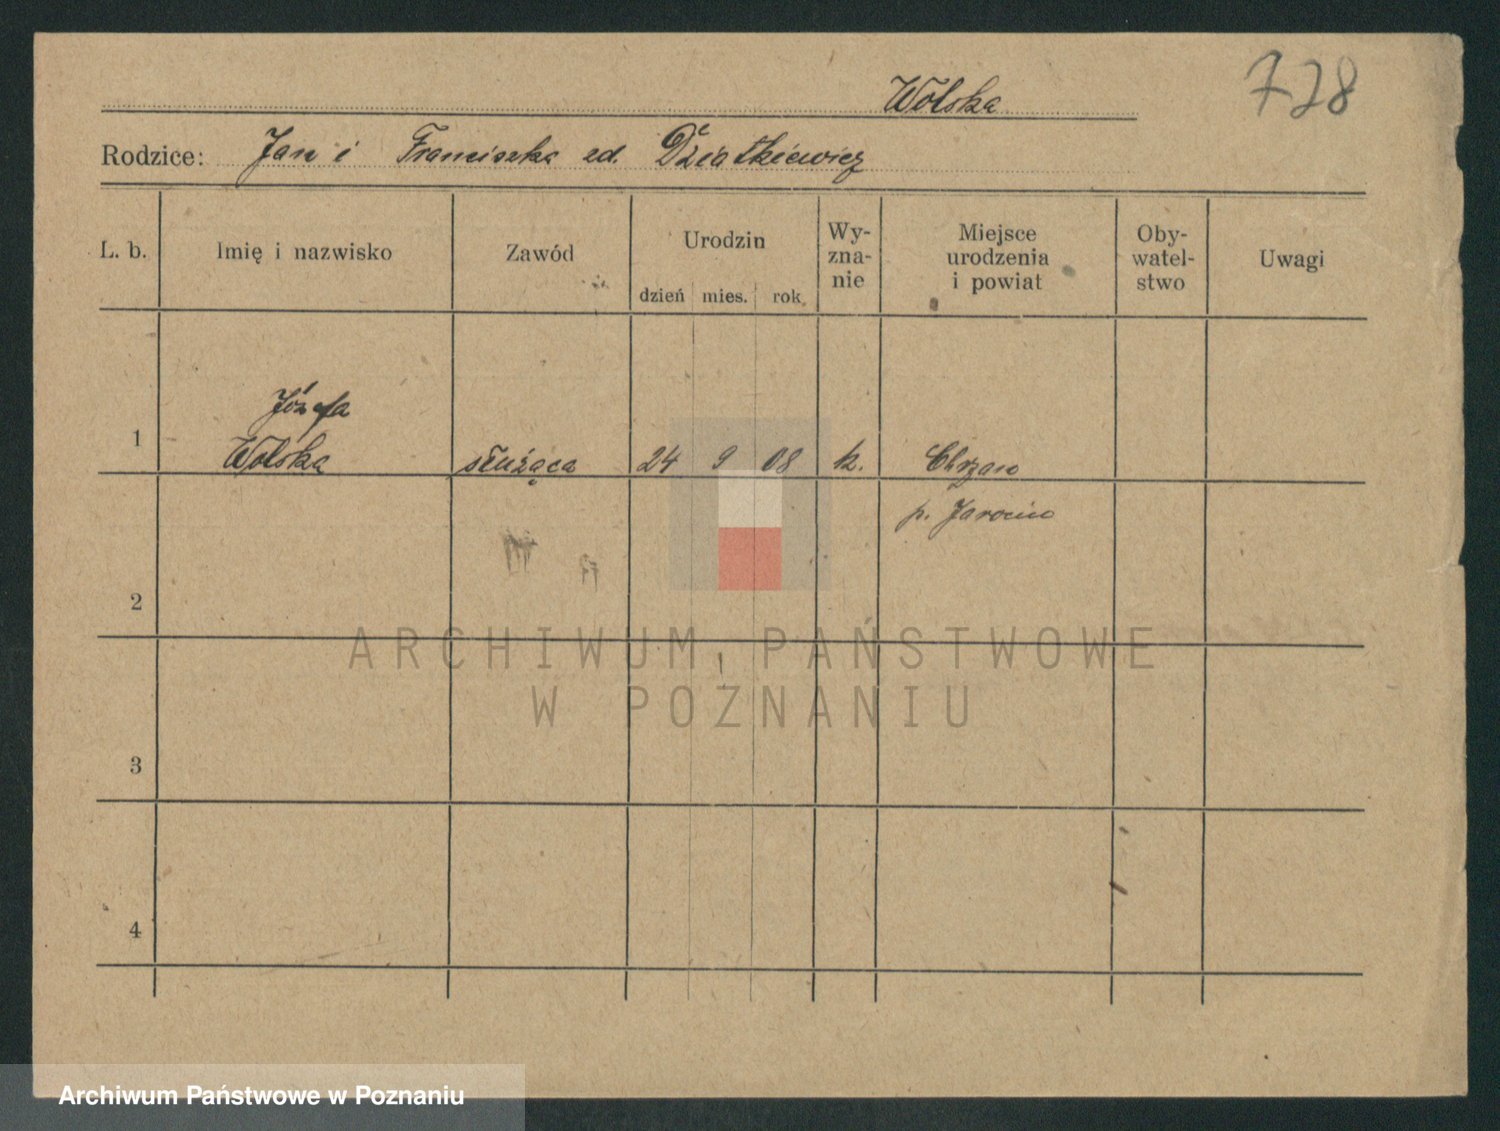 728
Wolska
Rodzice: Jan i Franciszka zd. Dziatkiewicz
L. b. Imię i nazwisko Zawód Urodzin dzień mies. rok Wy-
zna-
nie Miejsce
urodzenia
i powiat Oby-
watel-
stwo Uwagi
Józefa
1 Wolska służąca 24 9 08 k. Chrzan
p. Jarocin
2
3
4
ARCHIWUM PAŃSTWOWE
W POZNANIU
Archiwum Państwowe w Poznaniu